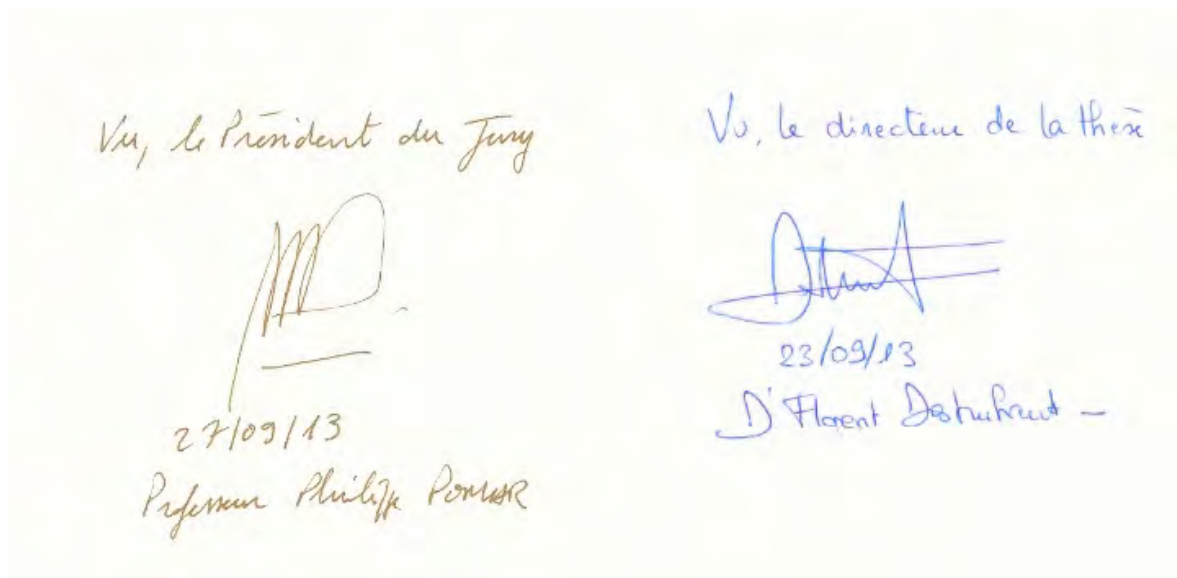 Vu, le Président du Jury
27/09/13
Professeur Philippe POMAR
Vu, le directeur de la thèse
23/09/13
Dr Florent Destruhaut